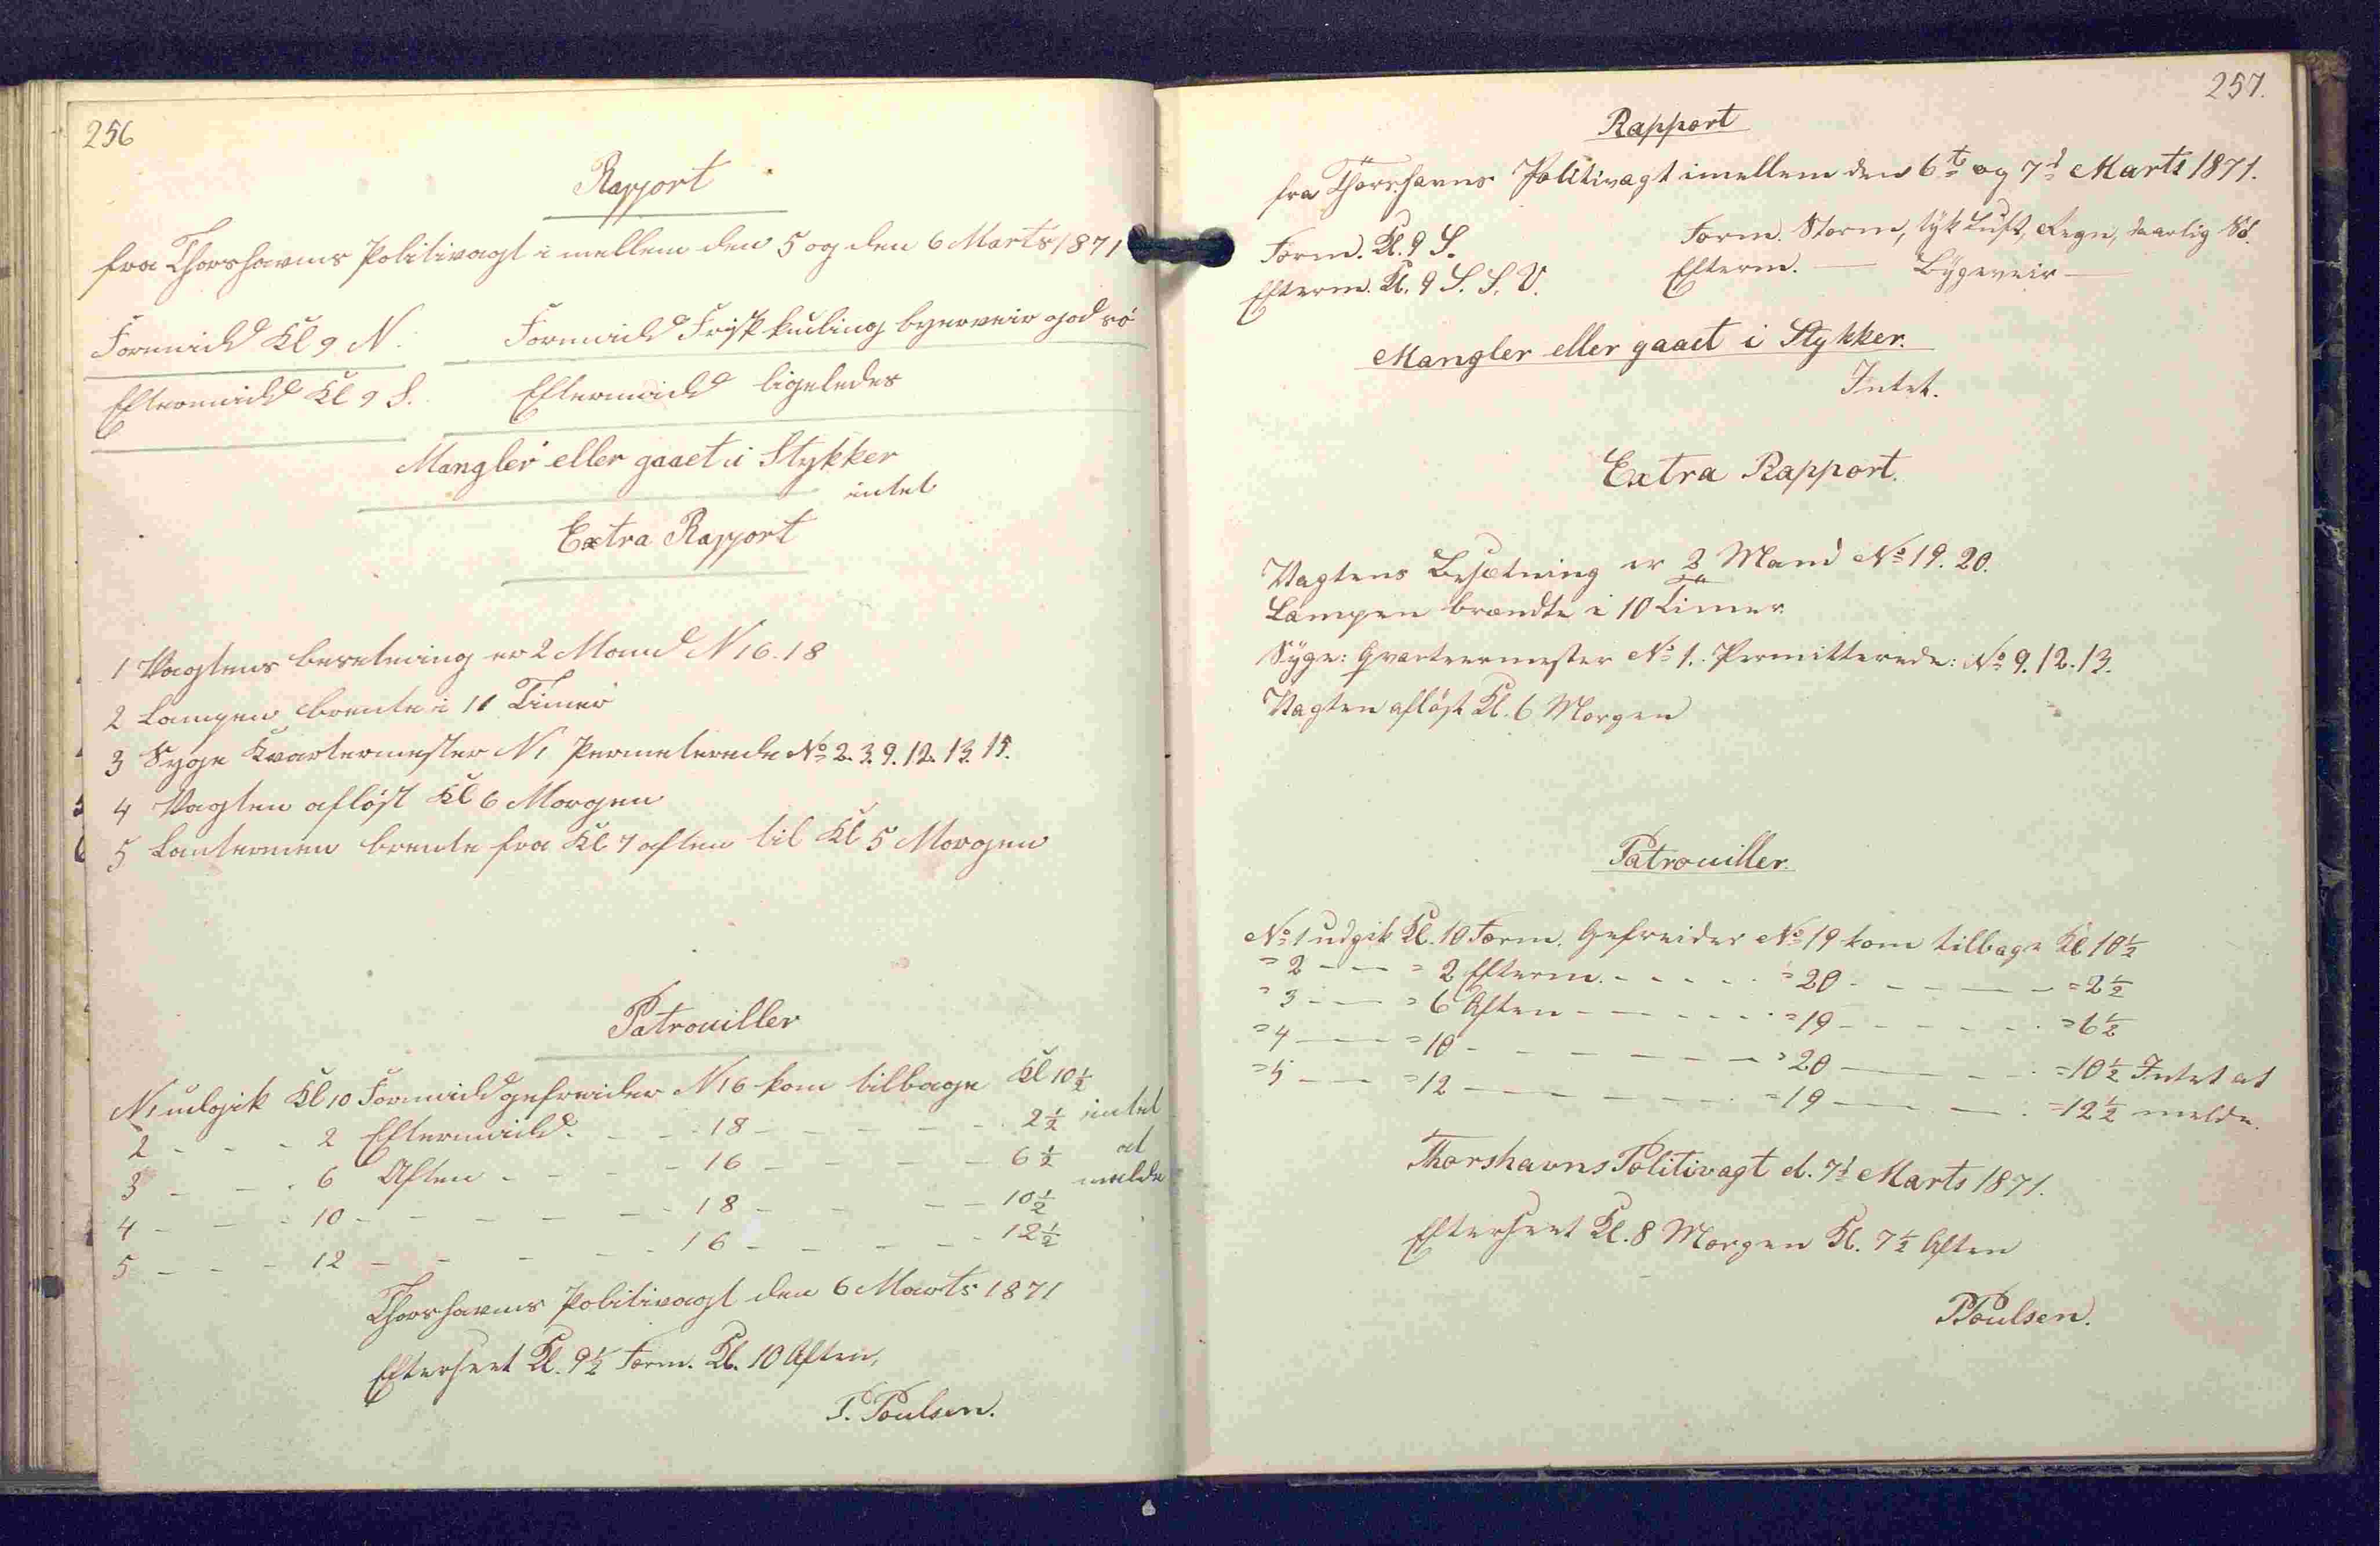 256
Rapport
fra Thorshavns Politivagt i mellem den 5 og den 6 Marts 1871
Formidd Kl 9 N. Formidd Frisk kuling byerveir god sö
Eftermidd Kl 9 S. Eftermidd ligeledes
Mangler eller gaaet i Stykker
intet
Extra Rapport
1 Vagtens besetning er 2 Mand N 16. 18
2 Lampen brente i 11 Timer
3 Syge Kvartermester N 1 Permeterede No 2. 3. 9. 12. 13. 15.
4 Vagten aflöst Kl 6 Morgen
5 Lanternen brente fra Kl 7 aften til Kl 5 Morgen
Patrouiller
N 1 udgik Kl 10 Formidd gefreider N 16 kom tilbage Kl 10 ½
2 - - - 2 Eftermidd. - - - 18 - - - - - 2 ½ intet
3 - - - 6 Aften - - - - 16 - - - - - 6 ½ at
4 - - - 10 - - - - - - 18 - - - - 10 ½ melde
5 - - - 12 - - - - - - 16 - - - - - 12 ½
Thorshavns Politivagt den 6 Marts 1871
Efterseet Kl. 9 ½ Form. Kl. 10 Aften,
P. Poulsen.
257.
Rapport
fra Thorshavns Politivagt imellem den 6te og 7d Marts 1871.
Form. Kl. 9 S. Form. Storm, tyk Luft, Regn, daarlig Sö.
Efterm. Kl. 9 S. S. V. Efterm. — Bygeveir —
Mangler eller gaaet i Stykker.
Intet.
Extra Rapport.
Vagtens Besætning er 2 Mand No 19. 20.
Lampen brændte i 10 Timer.
Syge: Qvarteermester No 1. Permitterede: No 9. 12. 13.
Vagten aflöst Kl. 6 Morgen
Patrouiller.
No 1 udgik Kl. 10 Form. Gefreider No 19 kom tilbage Kl 10 ½
= 2 - - - = 2 Efterm. - - - - = 20 - - - - - = 2 ½
= 3 - - - = 6 Aften - - - - - = 19 - - - - - = 6 ½
= 4 - - - = 10 - - - - - - = 20 - - - - = 10 ½ Intet at
= 5 - - - = 12 - - - - - - = 19 - - - - = 12 ½ melde.
Thorshavns Politivagt d. 7d Marts 1871.
Efterseet Kl. 8 Morgen Kl. 7 ½ Aften
PPoulsen.